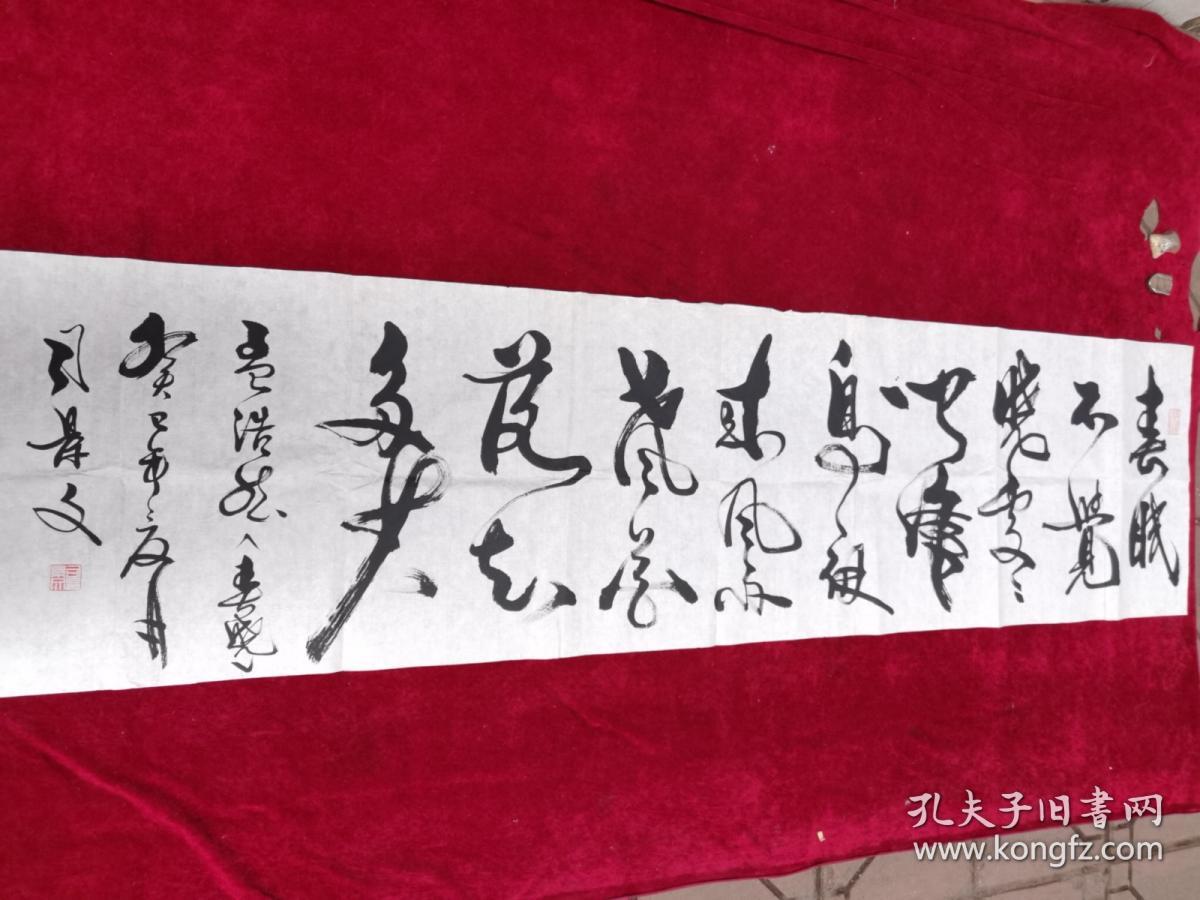 春眠
不覺
晓處々
聞啼
鳥夜
来風雨
聲花
落知
多少
孟浩然《春晓》
癸巳年夏月
司景文
孔夫子旧书网
www.kongfz.com